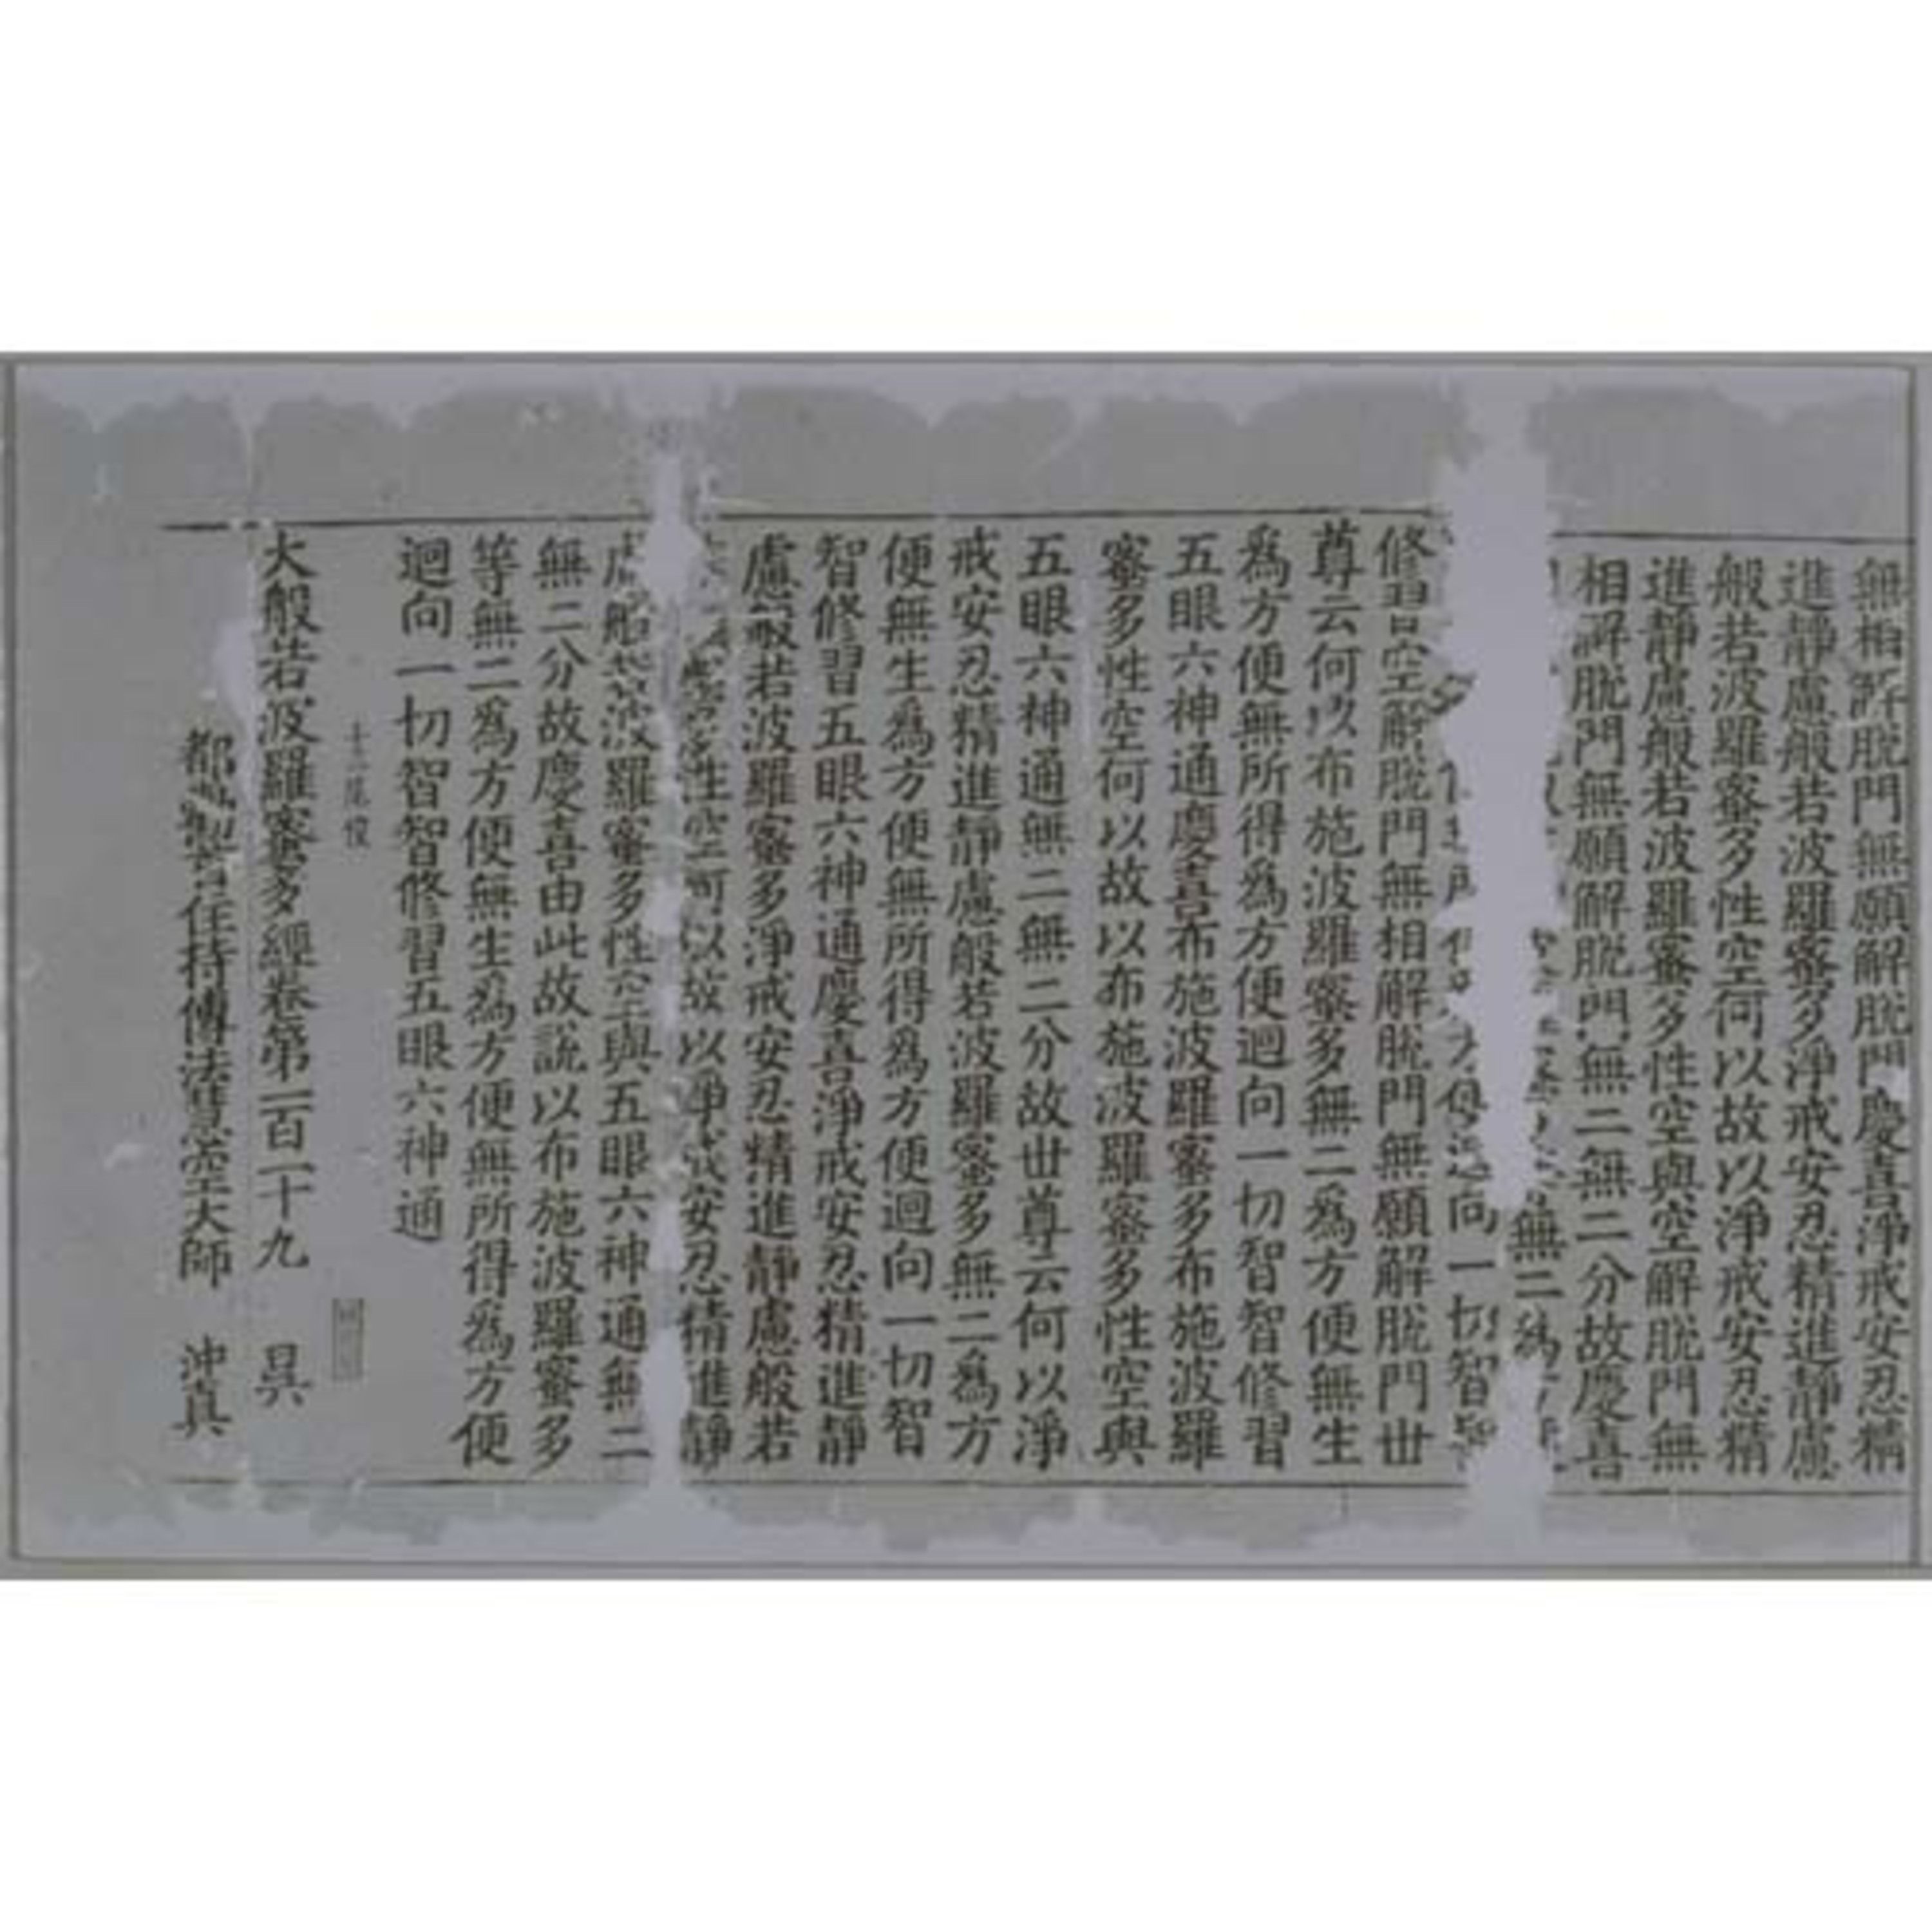 無相解脫門無願解脫門慶喜淨戒安忍精
進靜慮般若波羅蜜多淨戒安忍精進靜慮
般若波羅蜜多性空何以故以淨戒安忍精
進靜慮般若波羅蜜多性空與空解脫門無
相解脫門無願解脫門無二無二分故慶喜
無二為
迴向一切智智
修習空解脫門無相解脫門無願解脫門世
尊云何以布施波羅蜜多無二為方便無生
為方便無所得為方便迴向一切智智修習
五眼六神通慶喜布施波羅蜜多布施波羅
蜜多性空何以故以布施波羅蜜多性空與
五眼六神通無二無二分故世尊云何以淨
戒安忍精進靜慮般若波羅蜜多無二為方
便無生為方便無所得為方便迴向一切智
智修習五眼六神通慶喜淨戒安忍精進靜
慮般若波羅蜜多淨戒安忍精進靜慮般若
性空何以故以淨戒安忍精進靜
慮般若波羅蜜多性空與五眼六神通無二
無二分故慶喜由此故說以布施波羅蜜多
等無二為方便無生為方便無所得為方便
迴向一切智智修習五眼六神通
大般若波羅蜜多經卷第一百一十九 昃
都勸首住持傳法慧空大師 沖真